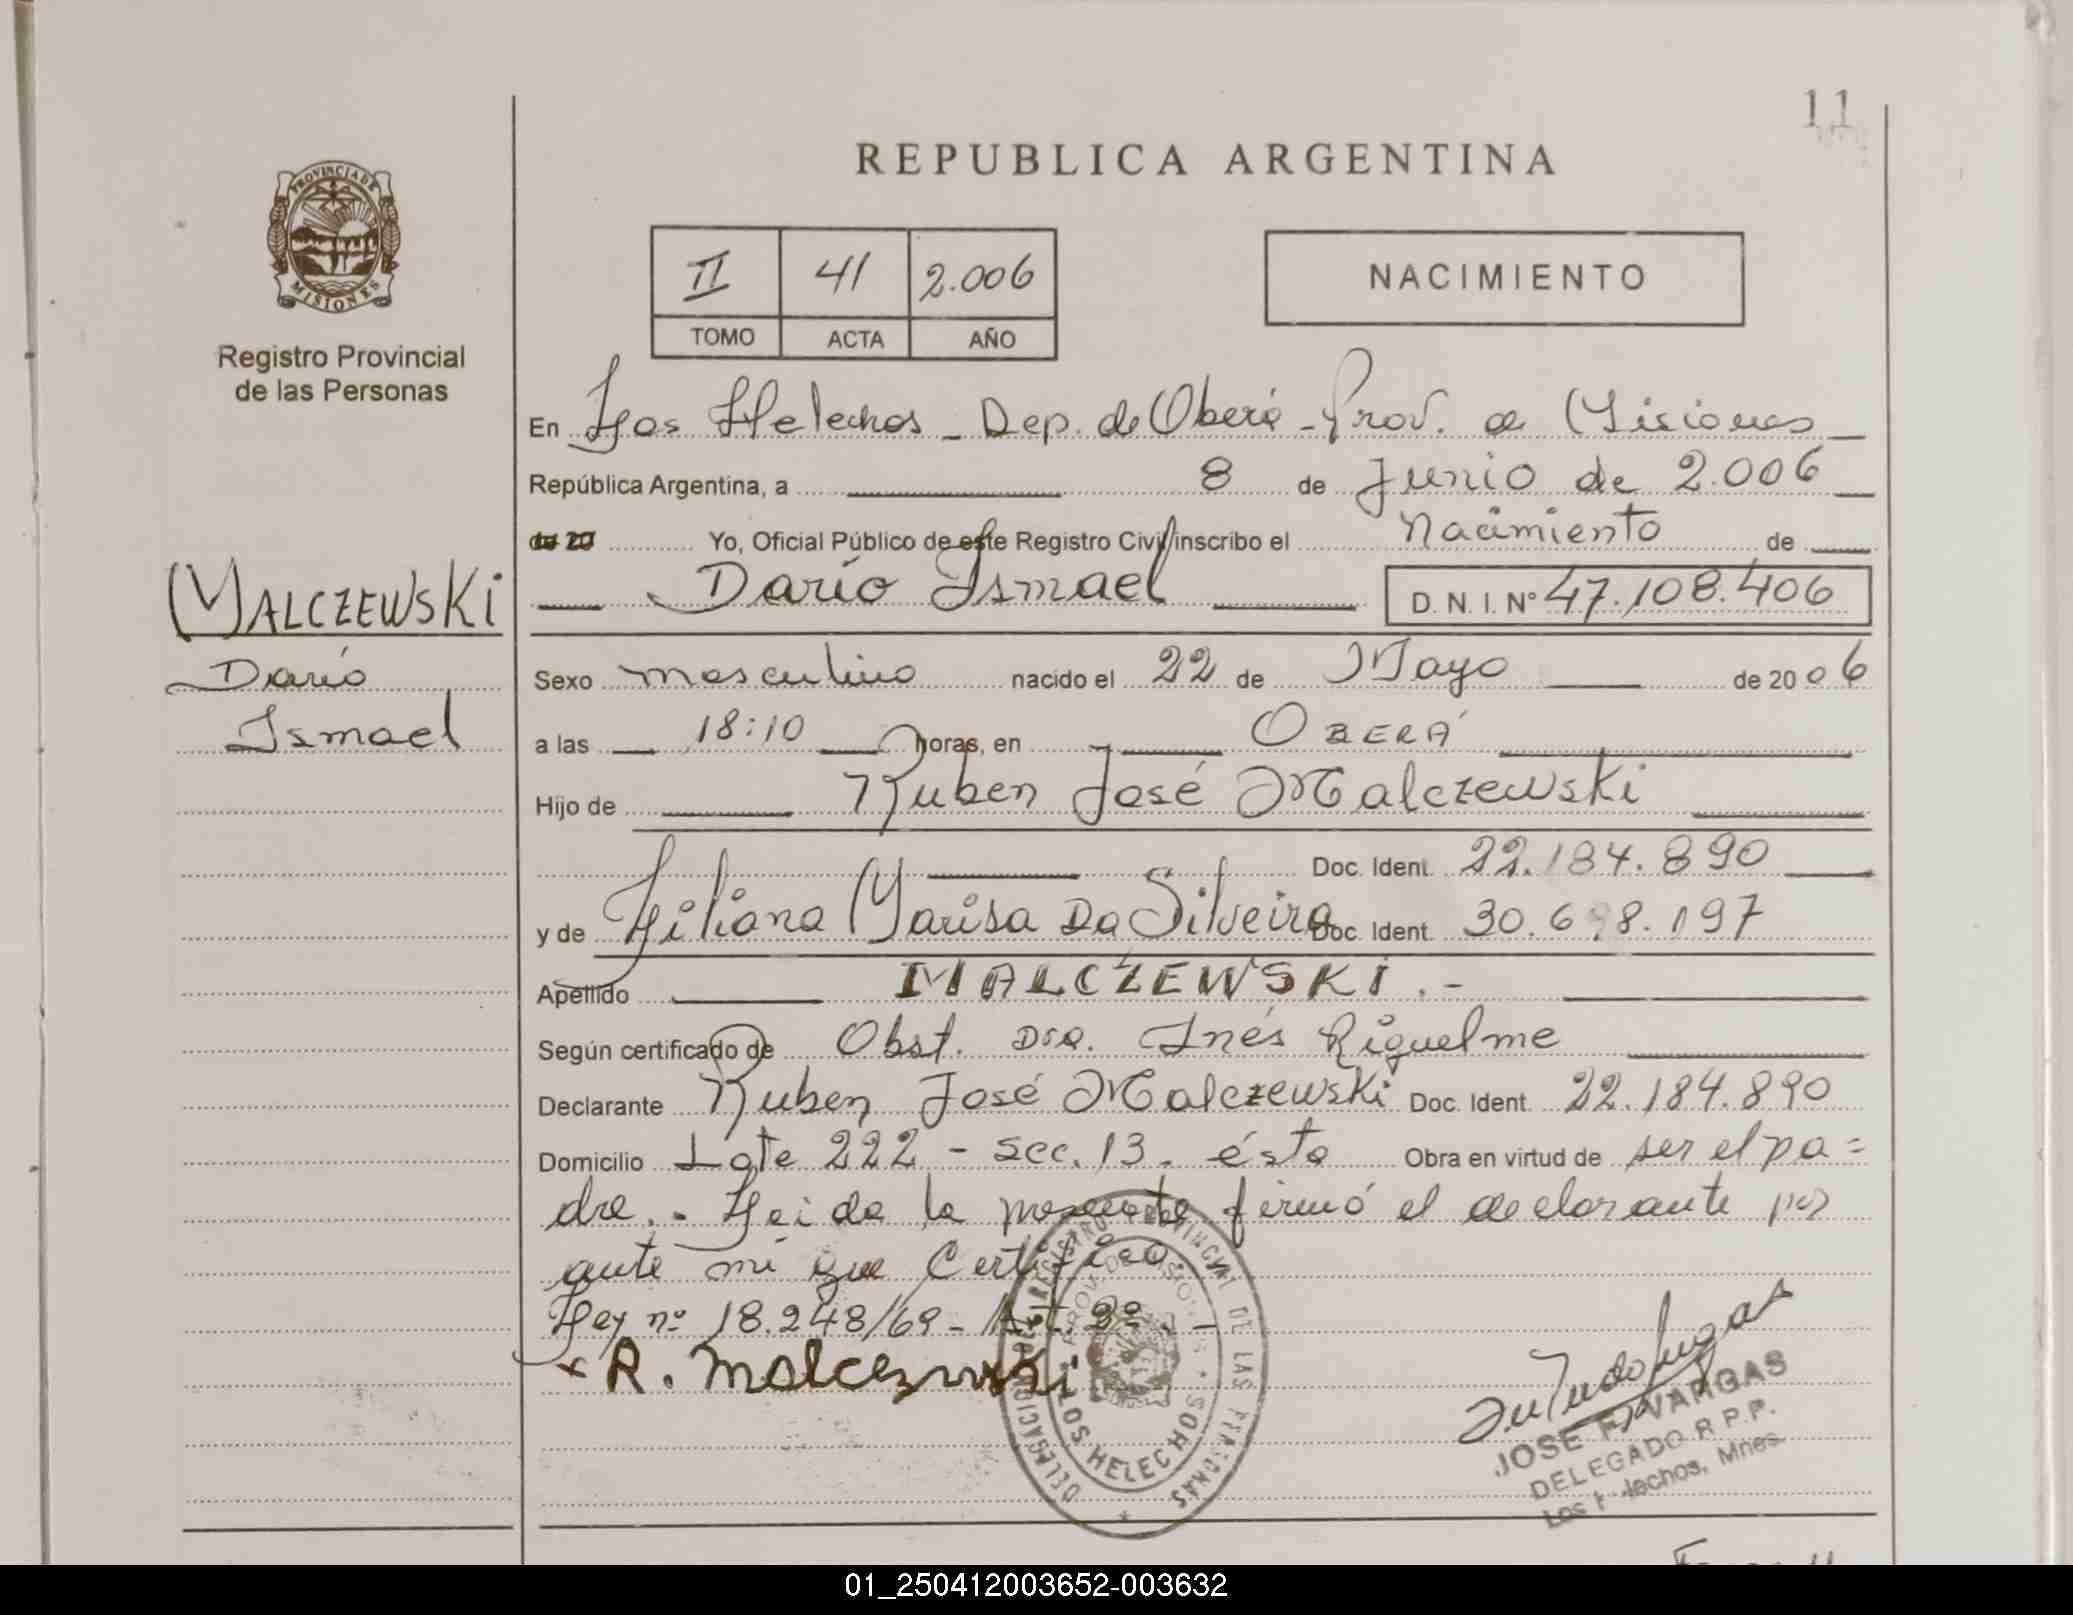 11
REPUBLICA ARGENTINA
PROVINCIA DE
MISIONES
Registro Provincial
de las Personas
II 41 2.006
TOMO ACTA AÑO
NACIMIENTO
En Los Helechos - Dep. de Oberá - Prov. de Misiones
República Argentina, a 8 de Junio de 2.006
de 20 Yo, Oficial Público de este Registro Civil inscribo el Nacimiento de
Darío Ismael D. N. I. Nº 47.108.406
MALCZEWSKI
Darío
Ismael
Sexo masculino nacido el 22 de Mayo de 2006
a las 18:10 horas, en OBERÁ
Hijo de Ruben José Malczewski
Doc. Ident. 22.184.890
y de Liliana Marisa Da Silveira Doc. Ident. 30.6 8.197
Apellido MALCZEWSKI.-
Según certificado de Obst. Dra. Inés Riquelme
Declarante Ruben José Malczewski Doc. Ident. 22.184.890
Domicilio Lote 222 - sec. 13. ésta Obra en virtud de ser el pa=
dre.- Leida la presente firmó el declarante por
ante mi que Certifico.
Ley nº 18.248/69 - Art. 2º.-
x R. Malczewski
DELEGACION REGISTRO PROVINCIAL DE LAS PERSONAS
PROV. DE MISIONES
LOS HELECHOS
JOSE F. VARGAS
DELEGADO R.P.P.
Los Helechos, Mnes.
01_250412003652-003632